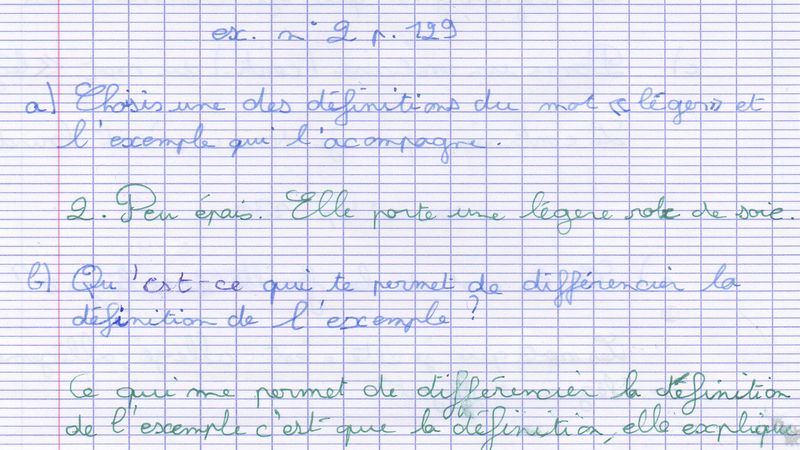 ex. n° 2 p. 129
a) Choisis une des définitions du mot «léger» et
l'exemple qui l'acompagne.
2. Peu épais. Elle porte une légere robe de soie.
b) Qu'est-ce qui te permet de différencier la
définition de l'exemple ?
Ce qui me permet de différencier la définition
de l'exemple c'est que la définition, elle explique